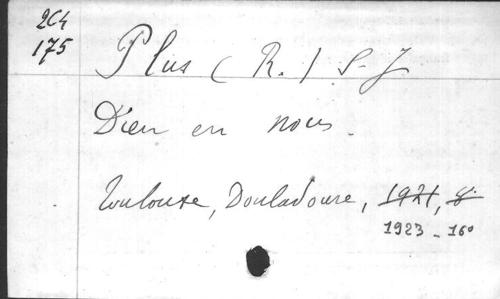 2C4
175
Plus (R.) S.J
Dieu en nous.
Toulouse, Douladoure, 1921, 8°
1923 - 16°